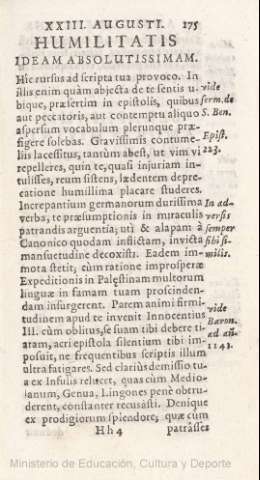 XXIII. AUGUSTI. 275
HUMILITATIS
IDEAM ABSOLUTISSIMAM.
Hic rursus ad scripta tua provoco. In
illis enim quàm abjecta de te sentis u-
bique, præsertim in epistolis, quibus
aut peccatoris, aut contemptu aliquo
aspersum vocabulum plerunque præ-
figere solebas. Gravissimis contume-
liis lacessitus, tantùm abest, ut vim vi
repelleres, quin te, quasi injuriam in-
tulisses, reum sistens, lædentem depre-
catione humillima placare studeres.
Increpantium germanorum durissima
verba, te præsumptionis in miraculis
patrandis arguentia; uti & alapam à
Canonico quodam inflictam, invicta
mansuetudine decoxisti. Eadem im-
mota stetit, cùm ratione improsperæ
Expeditionis in Palæstinam multorum
linguæ in famam tuam proscinden-
dam insurgerent. Parem animi firmi-
tudinem apud te invenit Innocentius
III. cùm oblitus, se suam tibi debere ti-
aram, acri epistola silentium tibi im-
posuit, ne frequentibus scriptis illum
ultra fatigares. Sed clariùs demissio tu-
a ex Infulis relucet, quas cùm Medio-
lanum, Genua, Lingones penè obtru-
derent, constanter recusâsti. Denique
ex prodigiorum splendore, quæ cum
Hh 4 patrâsses
vide
serm. de
S. Ben.
Epist.
223.
In ad-
versis
semper
sibi si-
milis.
vide
Baron.
ad añ.
1143.
Ministerio de Educación, Cultura y Deporte